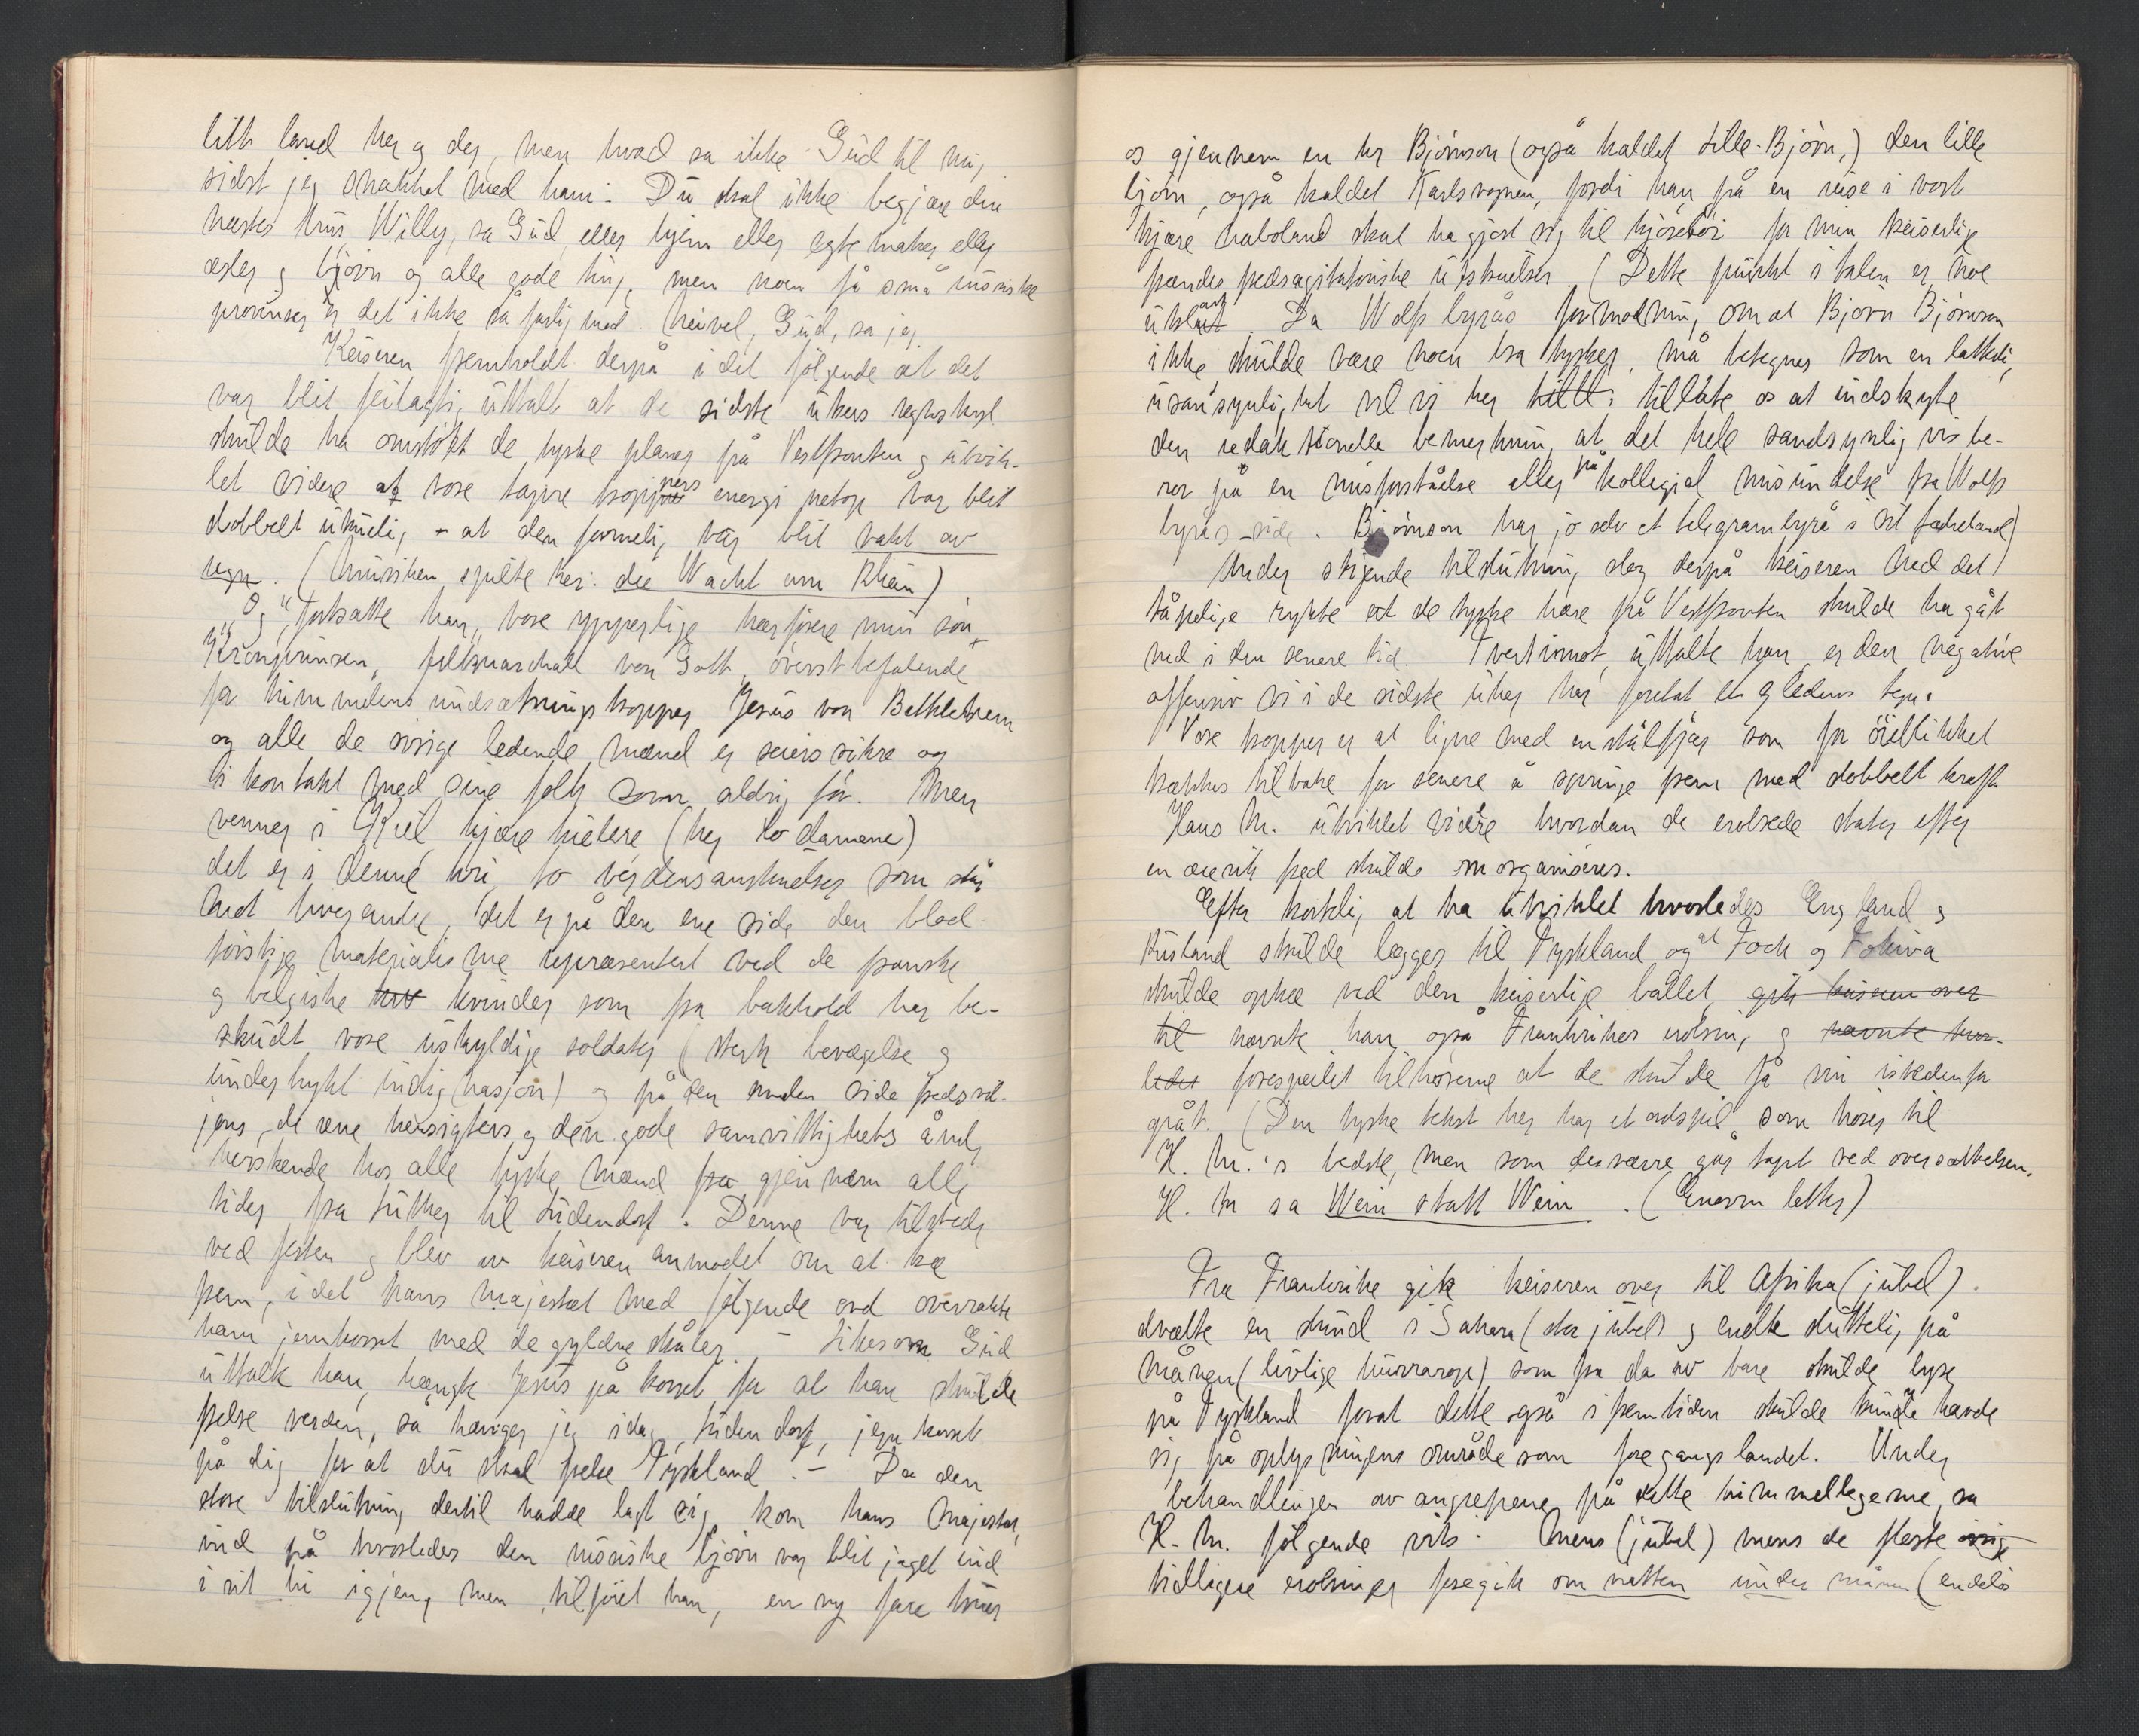 litt land her og der, men hvad sa ikke Gud til mig
sidst jeg snakket med ham: Du skal ikke begjære din
næstes hus, Willy, sa Gud, eller hjem eller egtemaker eller
æsler og bjørn og alle gode ting, men noen få små russiske
provinser er det ikke så farlig med. Neivel, Gud, sa jeg.
Keiseren fremholdt derpå i det følgende at det
var blit feilagtig uttalt at de sidste ukers regnskyl
skulde ha omstøtt de tyske planer på Vestfronten og utvik-
let videre at vore tapre troppers energi netop var blit
dobbelt ukuelig, - at den formelig var blit vakt av
regn. (Musikken spilte her: die Wacht am Rhein)
"Og", fortsatte han, "vore ypperlige hærførere min søn
Kronprinsen, feltmarchalk von Gott, øverstbefalende
for himmelens undsætningstropper Jesus von Bethlehem
og alle de øvrige ledende mænd er seierssikre og
i kontakt med sine folk som aldrig før. Men
venner i Kiel, kjære kielere (her lo damerne)
det er i denne krig to verdensanskuelser som står
mot hverandre, det er på den ene side den blod-
tørstige materialisme representert ved de franske
og belgiske kvinder som fra bakhold har be-
skudt vore uskyldige soldater (sterk bevægelse og
undertrykt indignasjon) og på den anden side fredsvil-
jens, de rene hensigters og den gode samvittighets ånd,
herskende hos alle tyske mænd fra gjennem alle
tider fra Luther til Ludendorf. Denne var tilstede
ved festen og blev av keiseren anmodet om at træ
frem, idet hans majestæt med følgende ord overrakte
ham jernkorset med de gyldne stråler. - Likesom Gud
uttalte han, hængte Jesus på korset for at han skulde
frelse verden, så hænger jeg idag, Ludendorf, jern korset
på dig for at du skal frelse Tyskland. - Da den
store tilslutning dertil hadde lagt sig, kom hans Majestæt
ind på hvorledes den russiske bjørn var blit jaget ind
i sit hi igjen, men, tilføiet han, en ny fare truer
os gjennem en hr Bjørnson (også kaldet Lille-Bjørn,) den lille
bjørn, også kaldet Karlsvognen, fordi han på en reise i vort
kjære naboland skal ha gjort sig til kjøretøi for min keiserlige
frændes fredsagitatoriske utskeielser. (Dette punkt i talen er noe
uklart. Da Wolfs byrås formodning om at Bjørn Bjørnson
ikke skulde være noen bra tysker, må betegnes som en latterlig
usansynlighet vil vi her tillate os at indskyte
den redaktionelle bemerkning, at det hele sandsynligvis be-
ror på en misforståelse eller på kollegial misundelse fra Wolfs
byrås side. Bjørnson har jo selv et telegrambyrå i sit fædreland)
Under stigende tilslutning slog derpå keiseren ned det
tåpelige rykte at de tyske hære på Vestfronten skulde ha gåt
ned i den senere tid. Tvertimot, uttalte han, er den negative
offensiv vi i de sidste uker har foretat et gledens tegn.
Vore tropper er at ligne med en stålfjær som for øieblikket
trækkes tilbake for senere å springe frem med dobbelt kraft.
Hans M. utviklet videre hvordan de erobrede stater efter
en ærerik fred skulde omorganiseres.
Efter kortelig at ha utviklet hvorledes England og
Rusland skulde lægges til Tyskland og at Foch og Fokina
skulde optræ ved den keiserlige ballet, gik keiseren over
til nævnte han også Frankrikes erobring og nævnte hvor-
ledes forespeilet tilhørerne at de skulde få vin istedenfor
gråt. (Den tyske tekst her har et ordspil, som hører til
H. M.'s bedste, men som desværre går tapt ved oversættelsen.
H. M sa Wein statt Wein. (Enorm latter)
Fra Frankrike gik keiseren over til Afrika (jubel).
dvælte en stund i Sahara (stor jubel) og endte sluttelig på
månen (livlige hurrarop) som fra da av bare skulde lyse
på Tyskland forat dette også i fremtiden skulde kunde hævde
sig på oplysningens område som foregangslandet. Under
behandlingen av angrepene på dette himmellegeme, sa
H. M. følgende vits: Mens (jubel) mens de fleste øvrige
tidligere erobringer foregik om natten under månen (endeløs